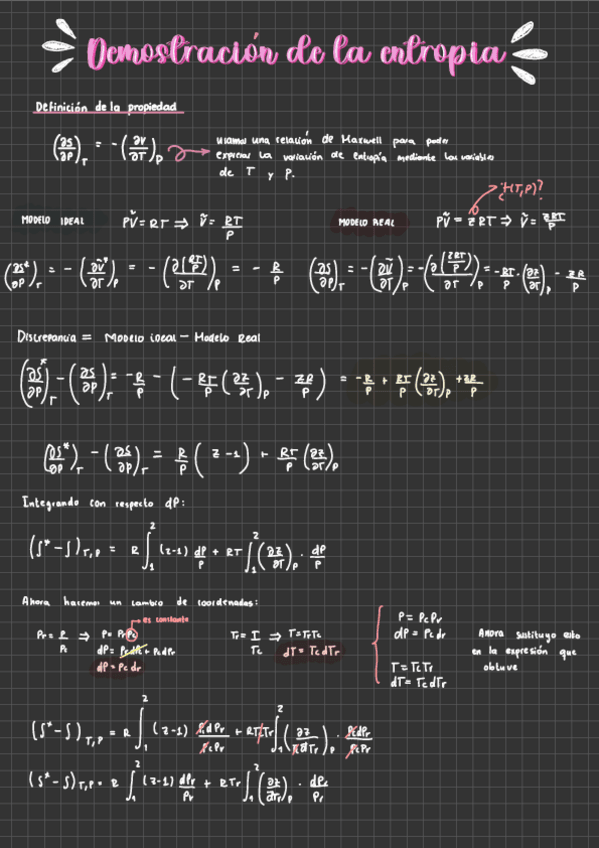 Demostración de la entropia
Definición de la propiedad
(∂S/∂P)_T = -(∂V/∂T)_P
usamos una relación de Maxwell para poder
expresar la variación de entropía mediante las variables
de T y P.
MODELO IDEAL PṼ = RT ⇒ Ṽ = RT/P
MODELO REAL PṼ = ZRT ⇒ Ṽ = ZRT/P
¿f(T,P)?
(∂S*/∂P)_T = -(∂Ṽ*/∂T)_P = -(∂[RT/P]/∂T)_P = - R/P
(∂S/∂P)_T = -(∂Ṽ/∂T)_P = -(∂[ZRT/P]/∂T)_P = -RT/P · (∂Z/∂T)_P - ZR/P
Discrepancia = Modelo ideal - Modelo Real
(∂S*/∂P)_T - (∂S/∂P)_T = -R/P - (-RT/P (∂Z/∂T)_P - ZR/P) = -R/P + RT/P (∂Z/∂T)_P + ZR/P
(∂S*/∂P)_T - (∂S/∂P)_T = R/P (Z-1) + RT/P (∂Z/∂T)_P
Integrando con respecto dP:
(S* - S)_T,P = R ∫₁² (Z-1) dP/P + RT ∫₁² (∂Z/∂T)_P · dP/P
Ahora hacemos un cambio de coordenadas:
es constante
Pr = P/Pc ⇒ P = Pr Pc
dP = PcdPr + PcdPr
dP = Pc dr
Tr = T/Tc ⇒ T = TrTc
dT = TcdTr
P = PcPr
dP = Pcdr
T = TcTr
dT = TcdTr
Ahora sustituyo esto
en la expresión que
obtuve
(S* - S)_T,P = R ∫₁² (Z-1) PcdPr/PcPr + RTcTr ∫₁² (∂Z/TcdTr)_P · PcdPr/PcPr
(S* - S)_T,P = R ∫₁² (Z-1) dPr/Pr + RTr ∫₁² (∂Z/∂Tr)_P · dPr/Pr